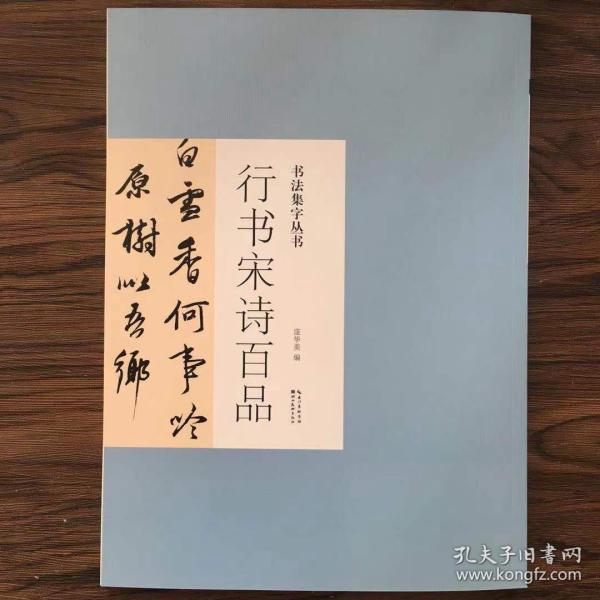 书法集字丛书
行书宋诗百品
庞华美 编
白雲香何事吟
原樹以吾鄉
孔夫子旧书网
www.kongfz.com